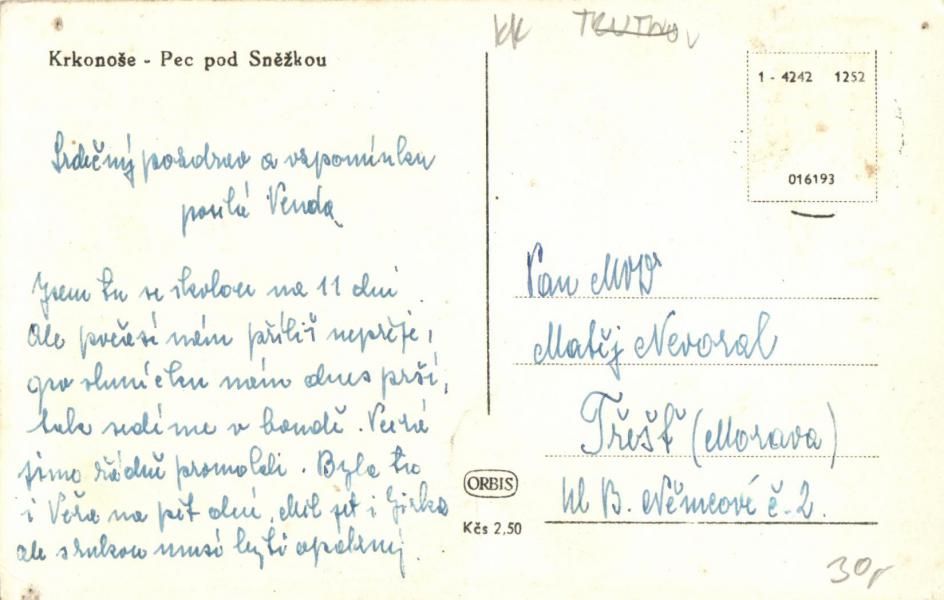 KK TRUTNOV
Krkonoše - Pec pod Sněžkou
1 - 4242 1252
016193
Srdečný pozdrav a vzpomínku
posílá Venda
Jsem tu se školou na 11 dní
ale počasí nám příliš nepřeje,
po sluníčku nám dnes prší,
tak sedíme v boudě. Včera
jsme řádně promokli. Byla tu
i Věra na pět dní. Měl jet i Jirka
ale s rukou musí býti opatrný.
Pan MVDr
Matěj Nevoral
Třešť (Morava)
Ul B. Němcové č. 2.
ORBIS
Kčs 2,50
30,-